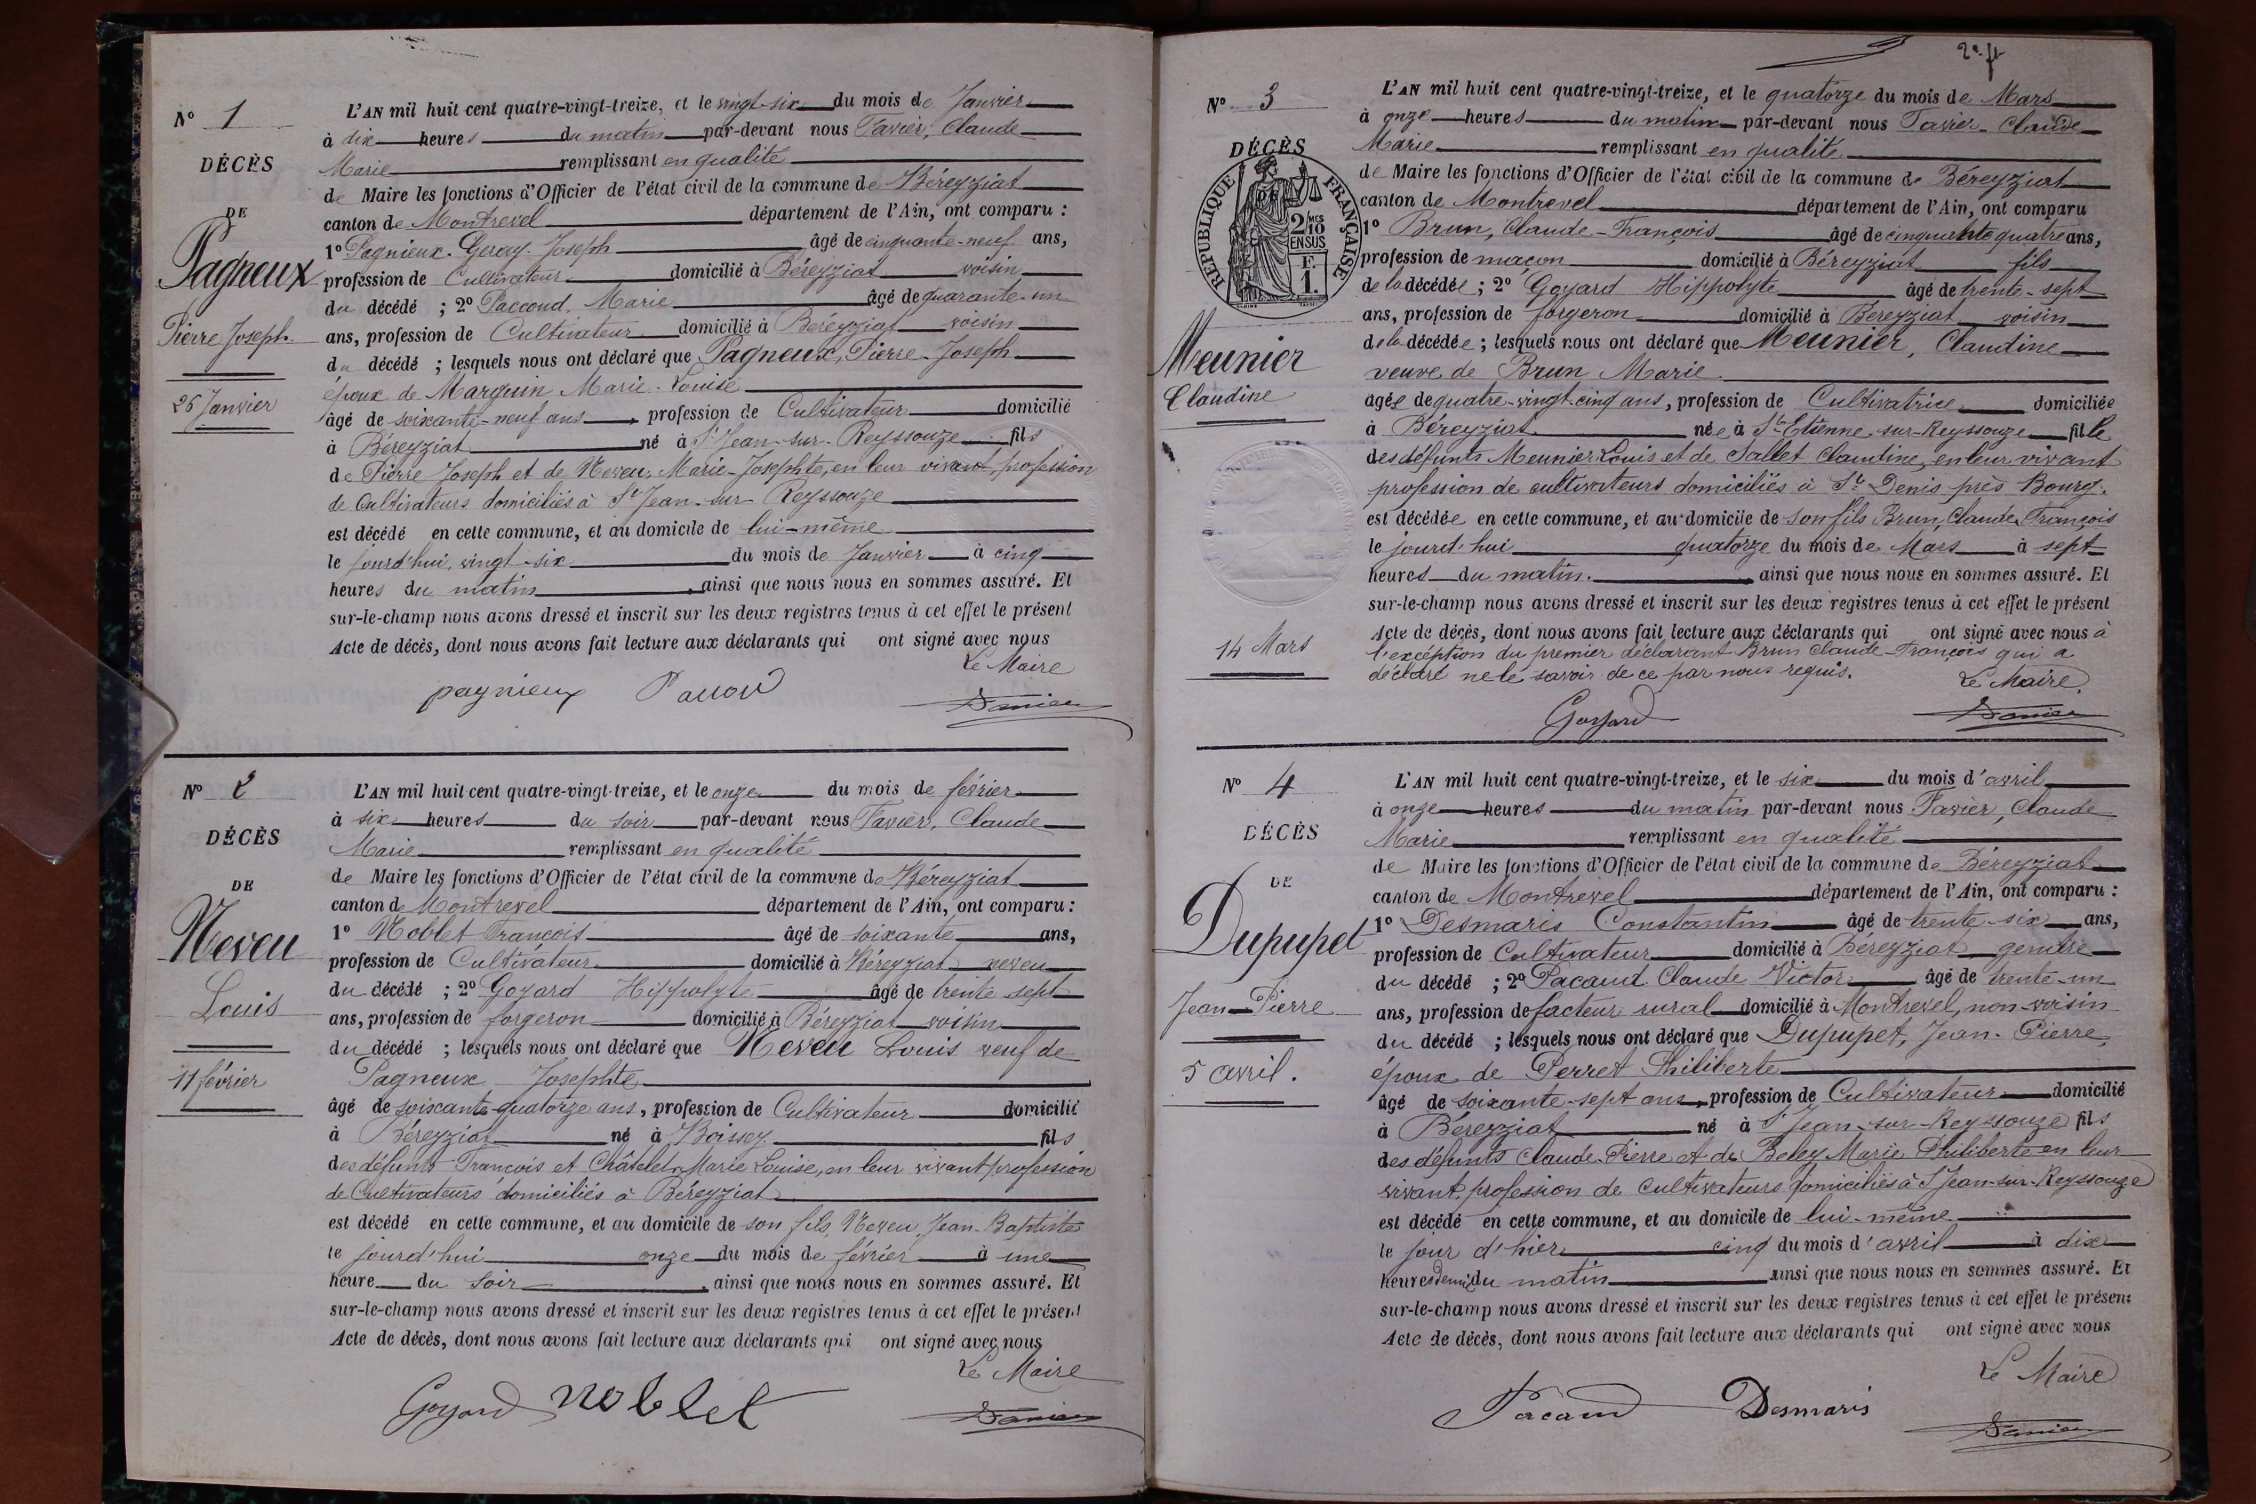 N° 1
DÉCÈS
DE
Pagneux
Pierre Joseph
26 Janvier
L'AN mil huit cent quatre-vingt-treize, et le vingt-six du mois de Janvier
à dix heures du matin par-devant nous Favier, Claude
Marie remplissant en qualité
de Maire les fonctions d'Officier de l'état civil de la commune de Béreyziat
canton de Montrevel département de l'Ain, ont comparu :
1° Pagnieux Joseph âgé de cinquante-neuf ans,
profession de Cultivateur domicilié à Béreyziat voisin
du décédé ; 2° Paccoud Marie âgé de quarante-un
ans, profession de Cultivateur domicilié à Béreyziat voisin
du décédé ; lesquels nous ont déclaré que Pagneux, Pierre-Joseph
époux de Marguin Marie-Louise
âgé de soixante-neuf ans, profession de Cultivateur domicilié
à Béreyziat né à St Jean-sur-Reyssouze fils
de Pierre Joseph et de Neveu, Marie-Josephte, en leur vivant, profession
de Cultivateurs domiciliés à St Jean-sur-Reyssouze
est décédé en cette commune, et au domicile de lui-même
le jourd'hui, vingt-six du mois de Janvier à cinq
heures du matin, ainsi que nous nous en sommes assuré. Et
sur-le-champ nous avons dressé et inscrit sur les deux registres tenus à cet effet le présent
Acte de décès, dont nous avons fait lecture aux déclarants qui ont signé avec nous
Le Maire
pagnieux
N° 2
DÉCÈS
DE
Neveu
Louis
11 février
L'AN mil huit cent quatre-vingt-treize, et le onze du mois de février
à six heures du soir par-devant nous Favier, Claude
Marie remplissant en qualité
de Maire les fonctions d'Officier de l'état civil de la commune de Béreyziat
canton de Montrevel département de l'Ain, ont comparu :
1° Noblet François âgé de soixante ans,
profession de Cultivateur domicilié à Béreyziat neveu
du décédé ; 2° Goyard Hippolyte âgé de trente sept
ans, profession de forgeron domicilié à Béreyziat voisin
du décédé ; lesquels nous ont déclaré que Neveu Louis veuf de
Pagneux Josephte
âgé de soixante-quatorze ans, profession de Cultivateur domicilié
à Béreyziat né à Boissey fils
des défunts François et Châtelet Marie Louise, en leur vivant profession
de Cultivateurs domiciliés à Béreyziat
est décédé en cette commune, et au domicile de son fils, Neveu Jean-Baptiste
le jourd'hui onze du mois de février à une
heure du soir, ainsi que nous nous en sommes assuré. Et
sur-le-champ nous avons dressé et inscrit sur les deux registres tenus à cet effet le présent
Acte de décès, dont nous avons fait lecture aux déclarants qui ont signé avec nous
Le Maire
Goyard noblet
N° 3
DÉCÈS
DE
RÉPUBLIQUE FRANÇAISE
2/10 MES
EN SUS
F.
1.
Meunier
Claudine
14 Mars
L'AN mil huit cent quatre-vingt-treize, et le quatorze du mois de Mars
à onze heures du matin par-devant nous Favier Claude
Marie remplissant en qualité
de Maire les fonctions d'Officier de l'état civil de la commune de Béreyziat
canton de Montrevel département de l'Ain, ont comparu
1° Brun, Claude-François âgé de cinquante quatre ans,
profession de maçon domicilié à Béreyziat fils
de la décédée ; 2° Goyard Hippolyte âgé de trente-sept
ans, profession de forgeron domicilié à Béreyziat voisin
de la décédée ; lesquels nous ont déclaré que Meunier, Claudine
veuve de Brun Marie
âgée de quatre-vingt-cinq ans, profession de Cultivatrice domiciliée
à Béreyziat née à St Etienne-sur-Reyssouze fille
des défunts Meunier Louis et de Sallet Claudine, en leur vivant
profession de cultivateurs domiciliés à St Denis près Bourg.
est décédée en cette commune, et au domicile de son fils Brun, Claude François
le jourd'hui quatorze du mois de Mars à sept
heures du matin. ainsi que nous nous en sommes assuré. Et
sur-le-champ nous avons dressé et inscrit sur les deux registres tenus à cet effet le présent
Acte de décès, dont nous avons fait lecture aux déclarants qui ont signé avec nous à
l'exception du premier déclarant Brun Claude-François qui a
déclaré ne le savoir de ce par nous requis.
Le Maire
Goyard
N° 4
DÉCÈS
DE
Dupupet
Jean-Pierre
5 avril.
L'AN mil huit cent quatre-vingt-treize, et le six du mois d'avril
à onze heures du matin par-devant nous Favier, Claude
Marie remplissant en qualité
de Maire les fonctions d'Officier de l'état civil de la commune de Béreyziat
canton de Montrevel département de l'Ain, ont comparu :
1° Desmaris Constantin âgé de trente-six ans,
profession de Cultivateur domicilié à Béreyziat gendre
du décédé ; 2° Pacaud Claude Victor âgé de trente-un
ans, profession de facteur rural domicilié à Montrevel, non-voisin
du décédé ; lesquels nous ont déclaré que Dupupet, Jean-Pierre
époux de Perret Philiberte
âgé de soixante-sept ans, profession de Cultivateur domicilié
à Béreyziat né à St Jean-sur-Reyssouze fils
des défunts Claude-Pierre et de Beley Marie Philiberte en leur
vivant, profession de cultivateurs domiciliés à St Jean-sur-Reyssouze
est décédé en cette commune, et au domicile de lui-même
le jour d'hier cinq du mois d'avril à dix
heures demi du matin ainsi que nous nous en sommes assuré. Et
sur-le-champ nous avons dressé et inscrit sur les deux registres tenus à cet effet le présent
Acte de décès, dont nous avons fait lecture aux déclarants qui ont signé avec nous
Le Maire
Pacaud Desmaris